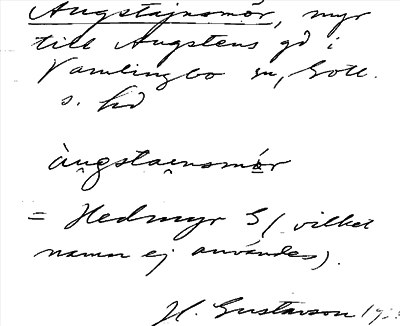 Augstajnsmör, myr
till Augstens gd i
Vamlingbo sn, Gotl.
s. hd
àu̯gstai̯nsmɷr
= Hedmyr S (vilket
namn ej användes).
H. Gustavson